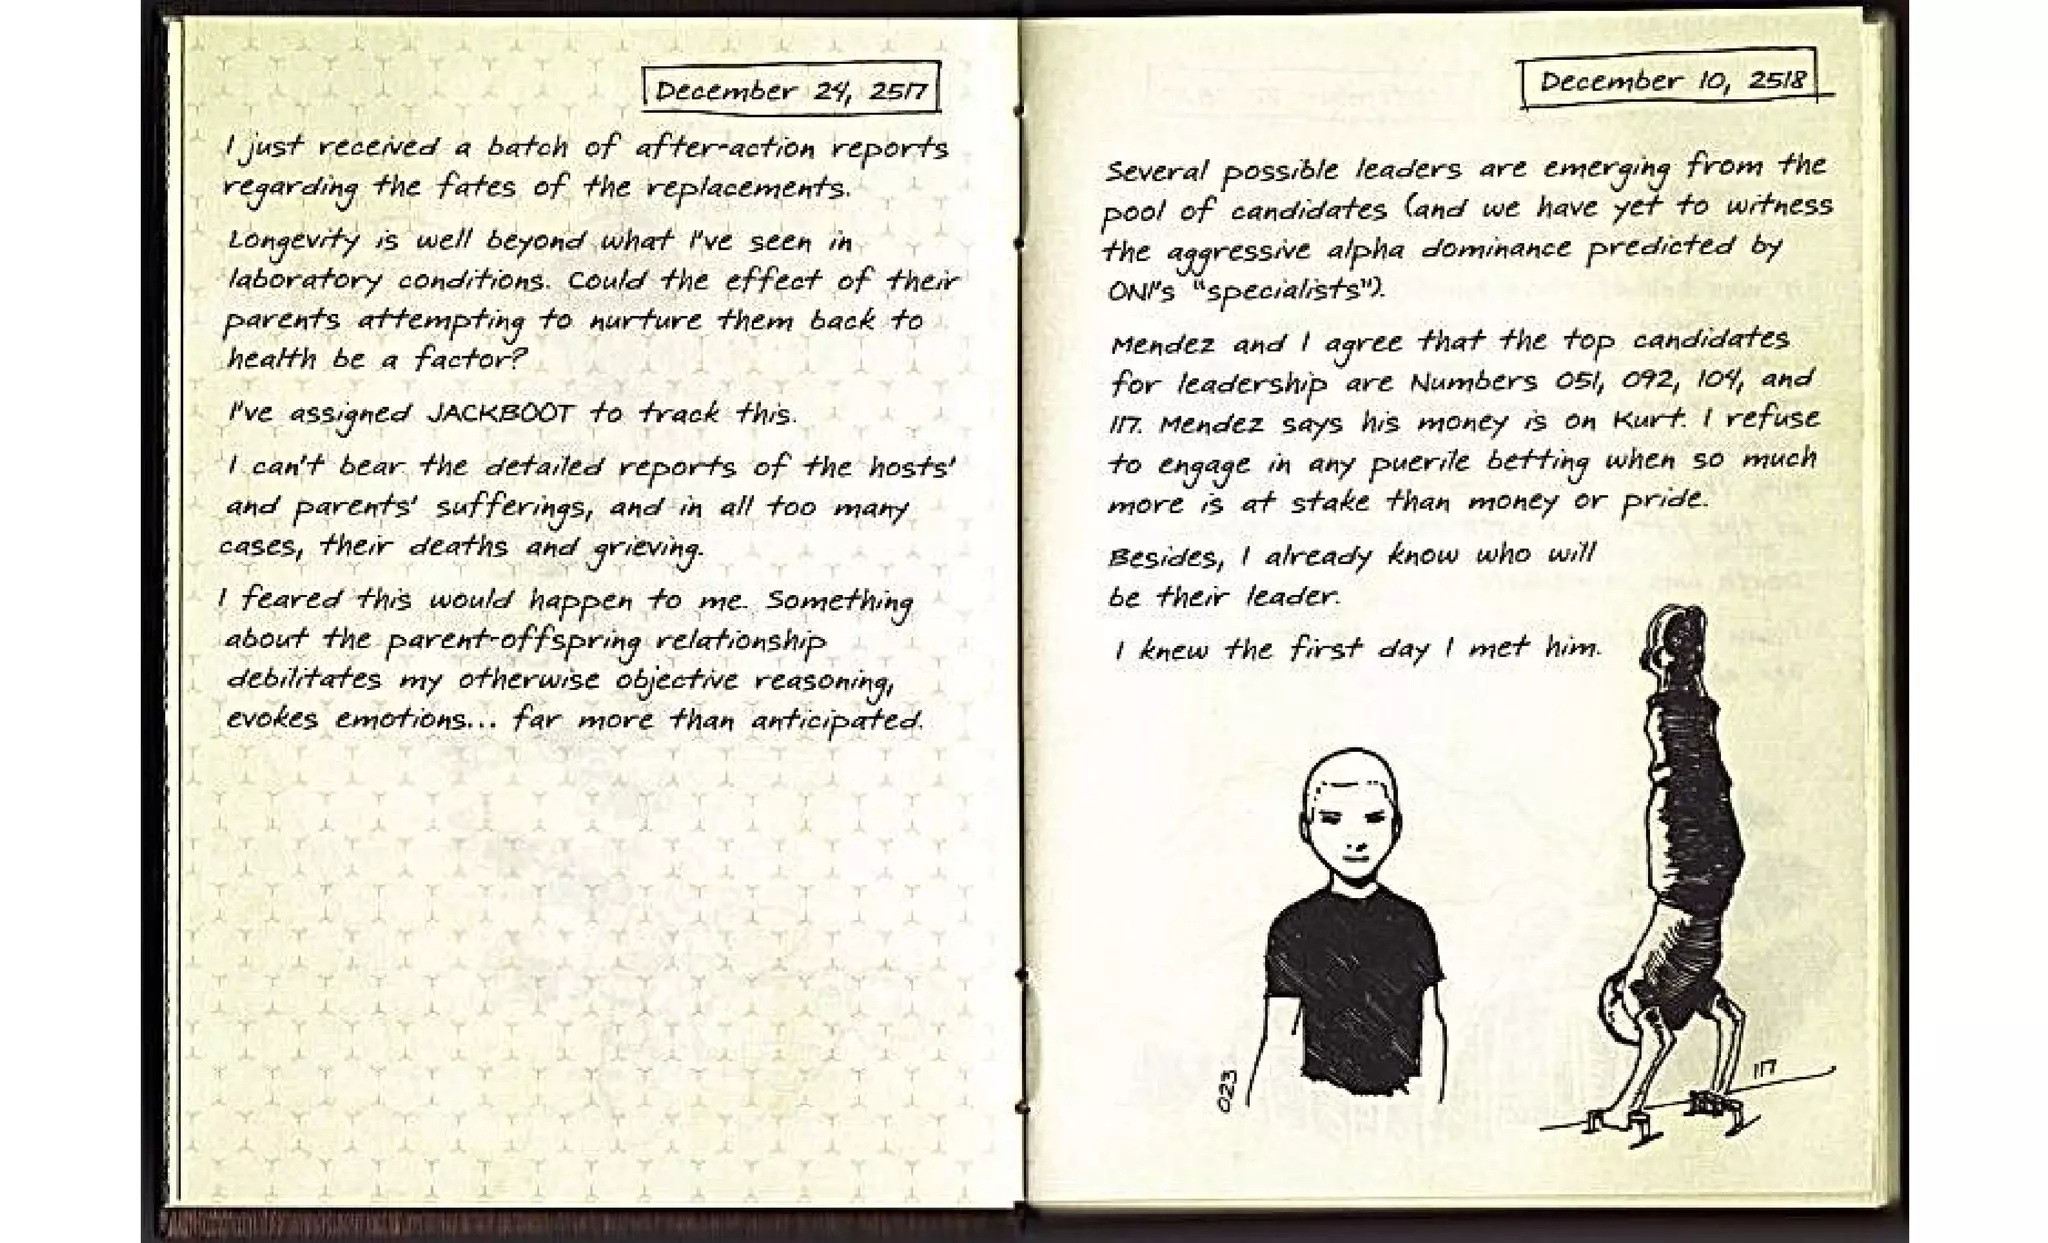 December 24, 2517
I just received a batch of after-action reports
regarding the fates of the replacements.
Longevity is well beyond what I've seen in
laboratory conditions. Could the effect of their
parents attempting to nurture them back to
health be a factor?
I've assigned JACKBOOT to track this.
I can't bear the detailed reports of the hosts'
and parents' sufferings, and in all too many
cases, their deaths and grieving.
I feared this would happen to me. Something
about the parent-offspring relationship
debilitates my otherwise objective reasoning,
evokes emotions... far more than anticipated.
December 10, 2518
Several possible leaders are emerging from the
pool of candidates (and we have yet to witness
the aggressive alpha dominance predicted by
ONI's "specialists").
Mendez and I agree that the top candidates
for leadership are Numbers 051, 092, 104, and
117. Mendez says his money is on Kurt. I refuse
to engage in any puerile betting when so much
more is at stake than money or pride.
Besides, I already know who will
be their leader.
I knew the first day I met him.
023
117